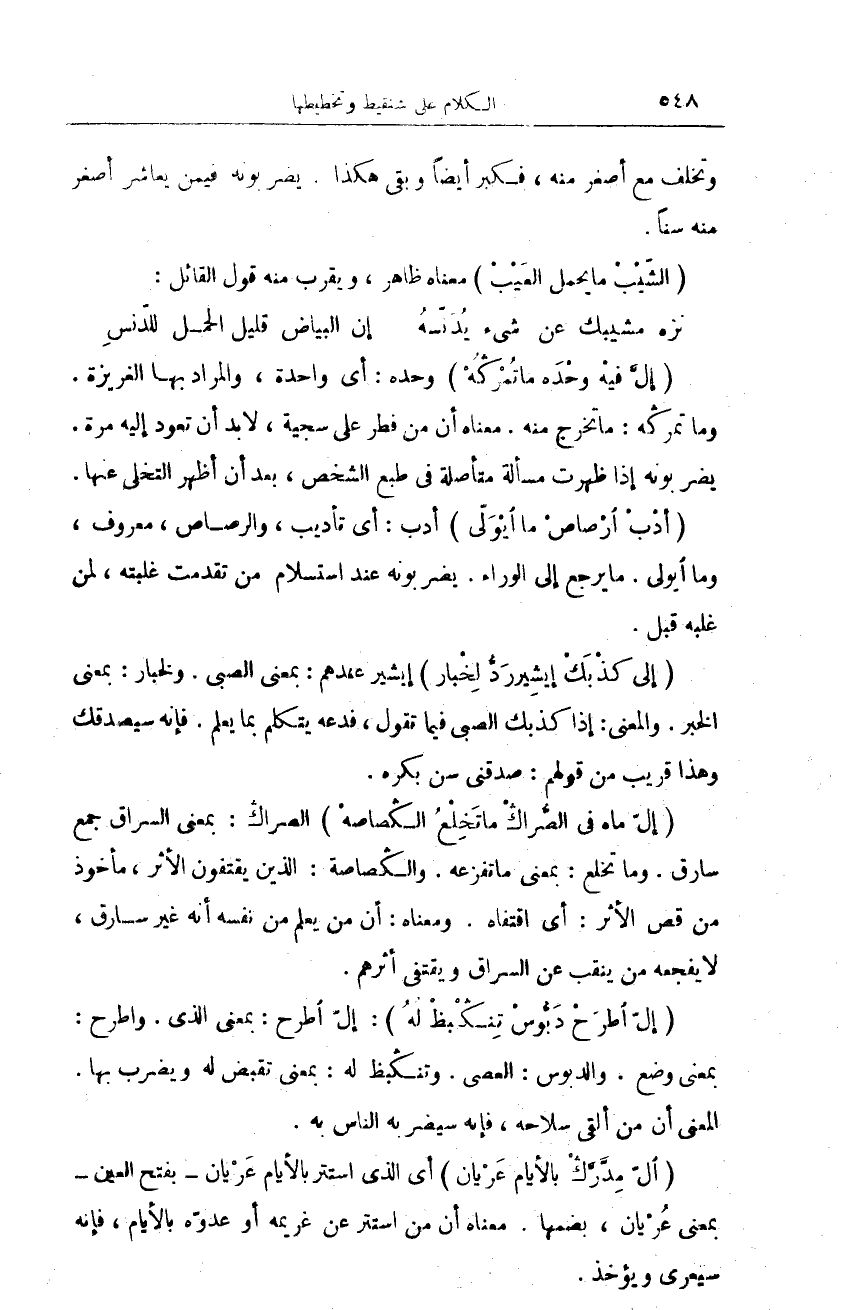 ٥٤٨ الكلام على شنقيط وتخطيطها
وتخلف مع أصغر منه ، فكبر أيضاً وبقى هكذا . يضربونه فيمن يعاشر أصغر
منه سناً .
( الشَّيْبْ مايحمل العَيْبْ ) معناه ظاهر ، ويقرب منه قول القائل :
نزه مشيبك عن شىء يُدَنّسهُ إن البياض قليل الحمل للدّنسِ
( إلَّ فيهْ وحْدَه ماتُمْرڭُهْ ) وحده : أى واحدة ، والمراد بها الغريزة .
وما تمرڭه : ماتخرج منه . معناه أن من فطر على سجية ، لابد أن تعود إليه مرة .
يضربونه إذا ظهرت مسألة متأصلة فى طبع الشخص ، بعد أن أظهر التخلى عنها .
( أدْبْ ارْصاصْ ما ايْوَلّى ) أدب : أى تأديب ، والرصاص ، معروف ،
وما أيولى . مايرجع إلى الوراء . يضربونه عند استسلام من تقدمت غلبته ، لمن
غلبه قبل .
( إلى كذْبَكْ إيشِيررَدُّ لِخْبار ) إيشير عندهم : بمعنى الصبى . ولخبار : بمعنى
الخبر . والمعنى : إذا كذبك الصبى فيما تقول ، فدعه يتكلم بما يعلم . فإنه سيصدقك
وهذا قريب من قولهم : صدقنى سن بكره .
( إلّ ماه فى الصُّراڭْ ماتَخِلْعُ الڭصاصهْ ) الصراڭ : بمعنى السراق جمع
سارق . وما تخلع : بمعنى ماتفزعه . والڭصاصة : الذين يقتفون الأثر ، مأخوذ
من قص الأثر : أى اقتفاه . ومعناه : أن من يعلم من نفسه أنه غير سارق ،
لايفجعه من ينقب عن السراق ويقتفى أثرهم .
( إلّ أطرَحْ دَبُّوسْ تِنڭْبظْ لهُ ) : إلّ أطرح : بمعنى الذى . واطرح :
بمعنى وضع . والدبوس : العصى . وتنڭبظ له : بمعنى تقبض له ويضرب بها .
المعنى أن من ألقى سلاحه ، فإنه سيضربه الناس به .
( ألّ مِدَّرَّڭْ بالأيام عَرْيان ) أى الذى استتر بالأيام عَرْيان ــ بفتح العين ــ
بمعنى عُرْيان ، بضمها . معناه أن من استتر عن غريمه أو عدوّه بالأيام ، فإنه
سيعرى ويؤخذ .